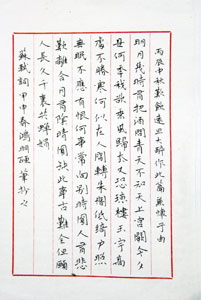 丙辰中秋歡飲達旦大醉作此篇兼懷子由
明月幾時有把酒問青天不知天上宮闕今夕
是何年我欲乘風歸去又恐瓊樓玉宇高
處不勝寒何似在人間轉朱閣低綺戶照
無眠不應有恨何事常向別時圓人有悲
歡離合月有陰晴圓缺此事古難全但願
人長久千裏共嬋娟
蘇軾詞甲申春鴻硬筆抄